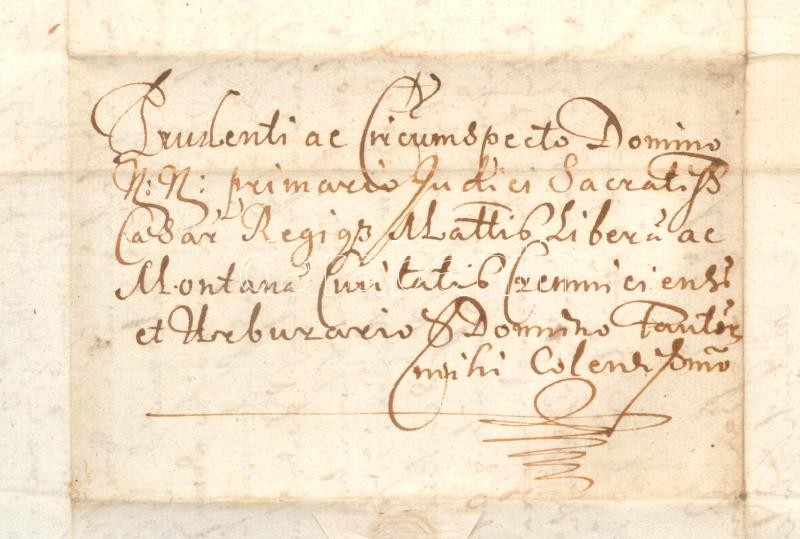 Prudenti ac Circumspecto Domino
N: N: primario Judici Sacratiss
Cæsar Regiqs Mattis Liberæ ac
Montanæ Civitatis Cremniciensis
et Urburario Domino Fautor
mihi Colendissmo